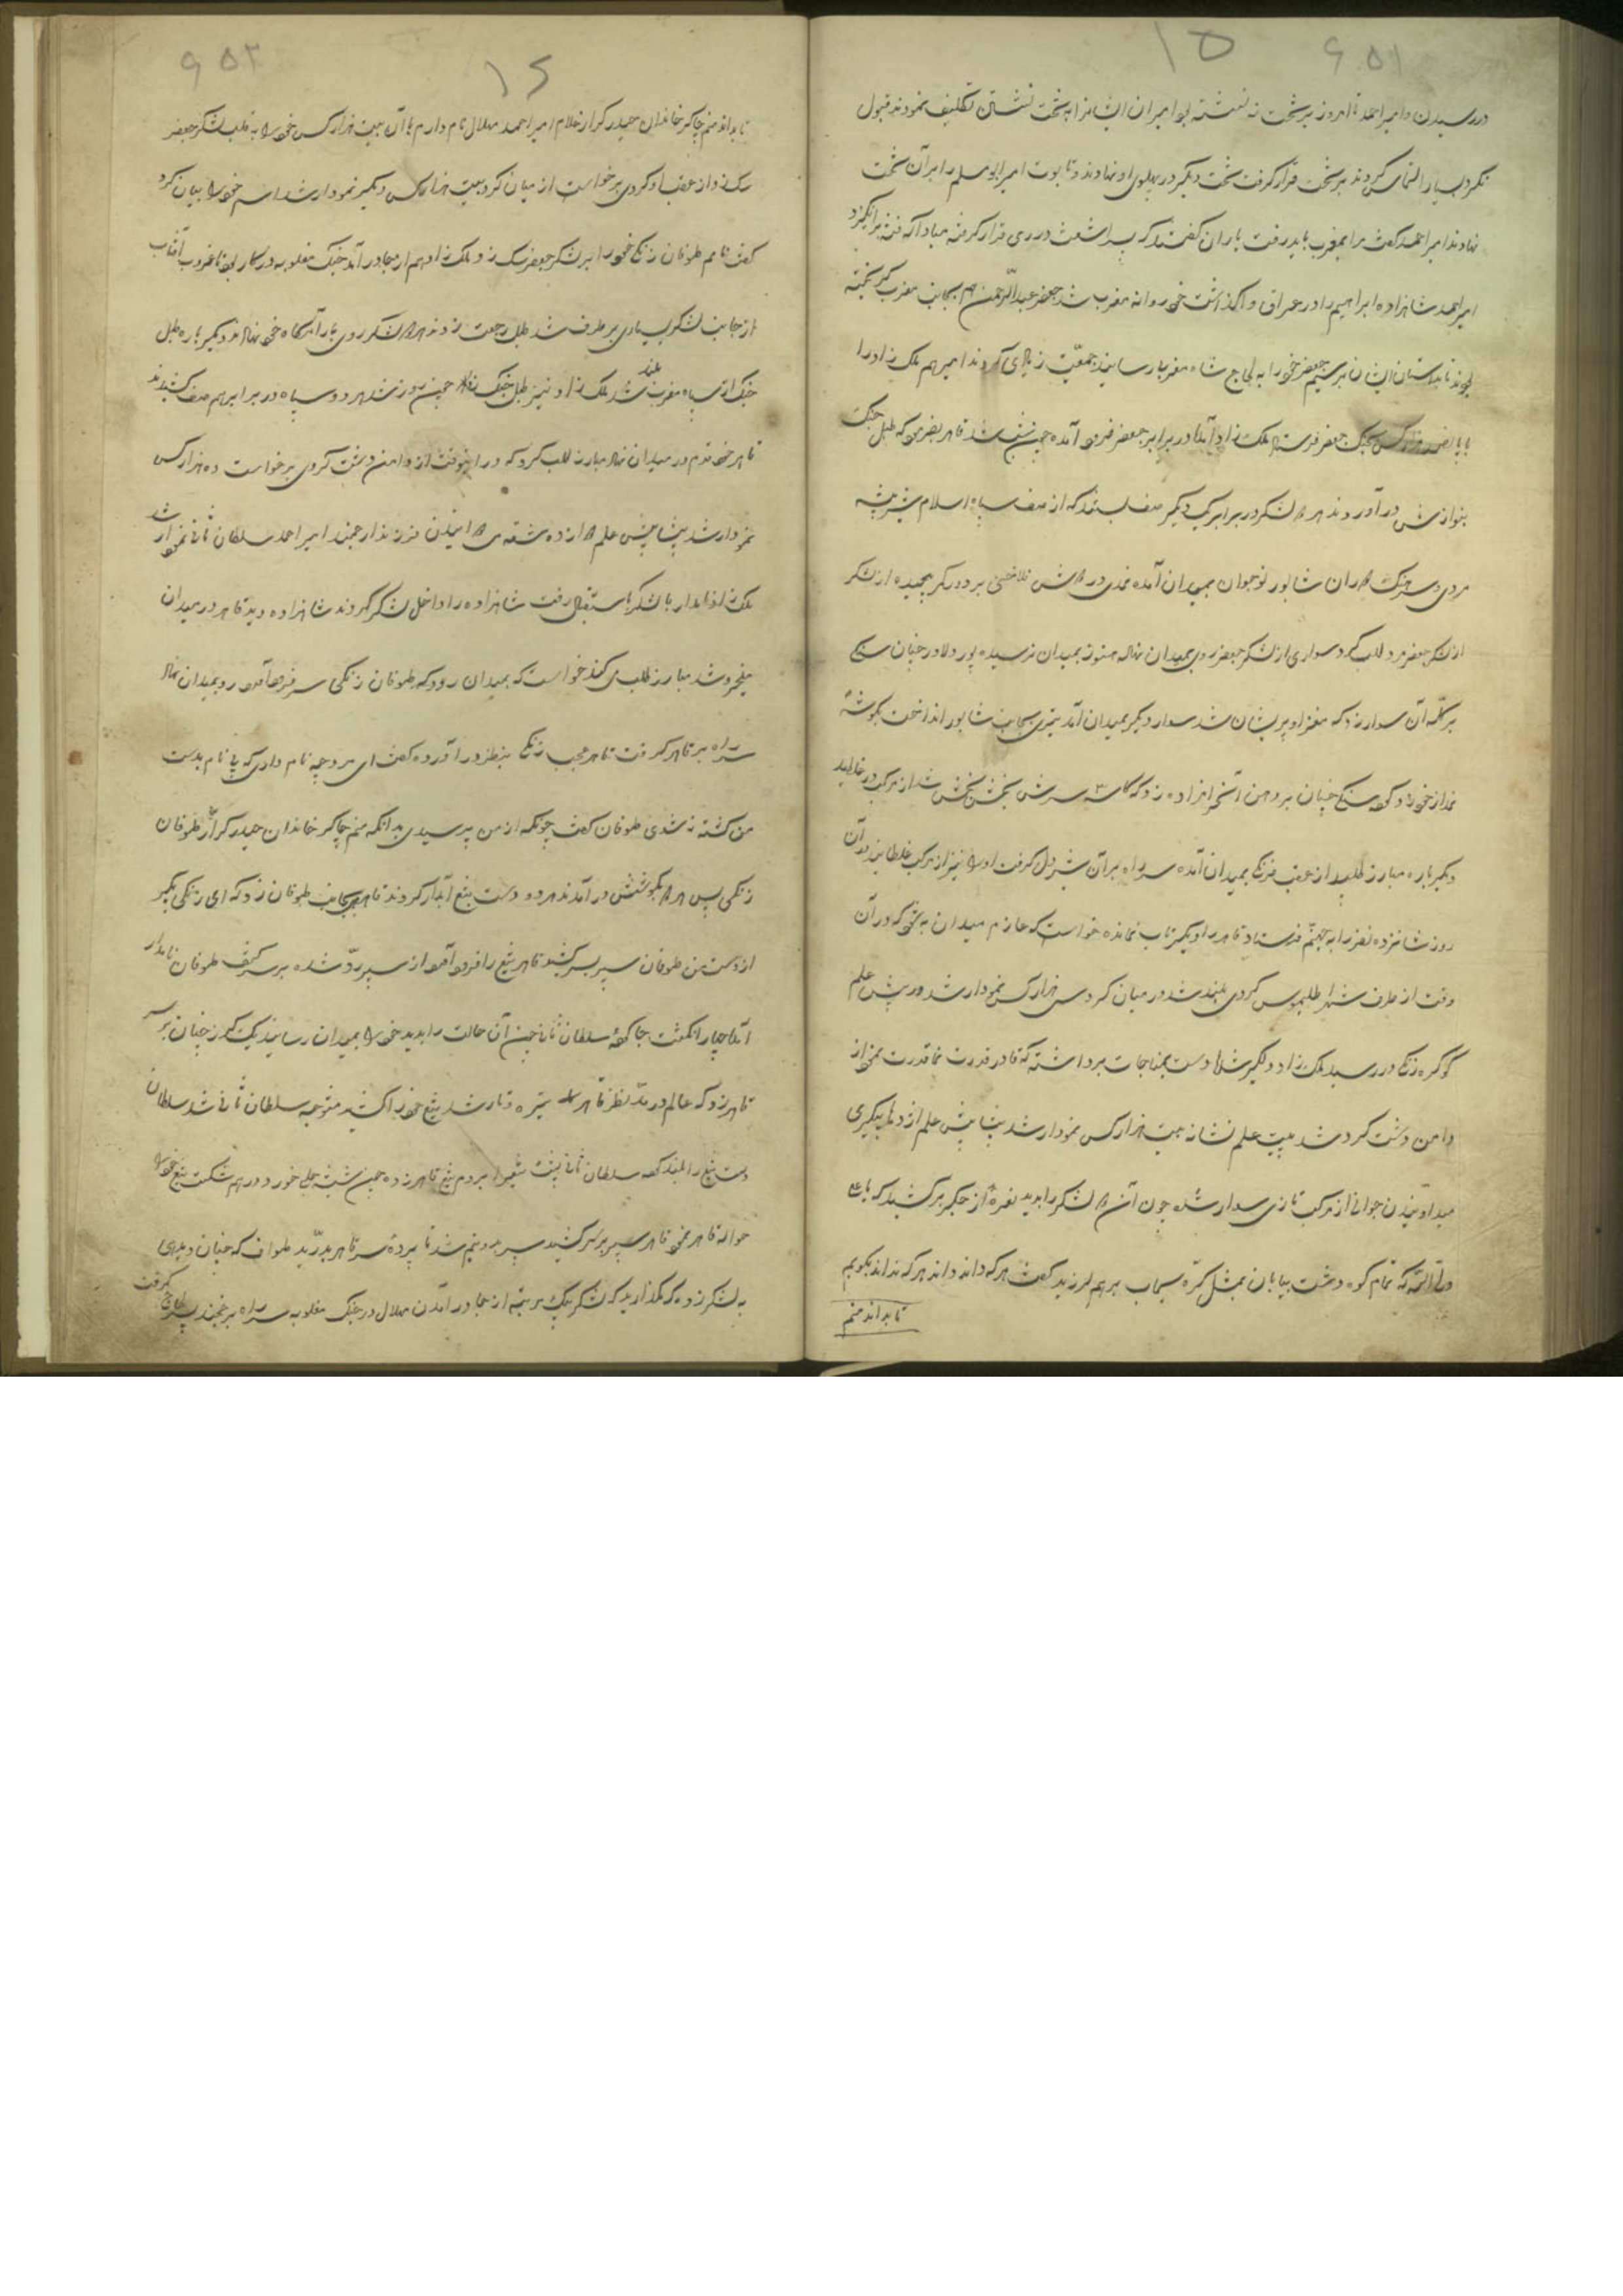 ۱۵ ۶۵۱
در رسیدن و امیر احمد تا امروز بر تخت ننشسته بود امیران ایشانرا به تخت نشستن تکلیف نمودند قبول
نکرد بسیار التماس کردند بر تخت قرار گرفت تخت دیگر در پهلوی او نهادند و تابوت امیر ابومسلم را بر آن تخت
نهادند امیر احمد گفت مرا بمغرب باید رفت یاران گفتند که پسر اشعث در ری قرار گرفته مبادا که فتنه برانگیزد
امیر احمد شاهزاده ابراهیم را در عراق واگذاشت خود روانه مغرب شد جعفر عبدالرحمن هم بجانب مغرب گریخته
بودند تا بداستان ایشان برسیم جعفر خود را به لجاج شاه مغرب رسانید جمعیت زیادی کردند امیر هم ملک زاد را
با کس بجنگ جعفر فرستاد ملک زاد آمد در برابر جعفر فرود آمده چون شب شد قاهر بفرمود که طبل جنگ
بنوازش در آوردند هر دو لشکر در برابر یکدیگر صف بستند که از صف سپاه اسلام شیر بیشه
مردی و جنگ شاپور نوجوان بمیدان آمده نمدی در فلاخنی بر دور کمر پیچیده از لشکر
از لشکر جعفر مرد طلب کرد سواری از لشکر جعفر روی بمیدان نهاد هنوز بمیدان نرسیده پور دلاور چنان سنگ
بر کله آن سوار زد که مغز او پریشان شد سوار دیگر بمیدان آمد تیری بجانب شاپور انداخت بگوشه
نمد از خود رد کرد سنگ چنان بر دهن آن زد که کاسه سرش بخش بخش شد از مرکب در غلطید
دیگر باره مبارز طلبید از عقب فرنگی بمیدان آمده سر راه بر آن شیر دل گرفت او را نیز از مرکب غلطانید در آن
روز شانزده نفر را به جهنم فرستاد قاهر را دیگر تاب نمانده خواست که عازم میدان بخود که در آن
وقت از طرف شهر طلیموس گردی بلند شد در میان گرد سی هزار کس نمودار شد در پیش علم
کوکره زنگی در رسید ملک زاد دلگیر شد دست بمناجات برداشته که قادر قدرت نما قدرت بنمو از
دامن دشت گرد شد بیست علم نشانه بیست هزار کس نمودار شد پیشاپیش علم اژدها پیکری
میداوئیدن جوانی از مرکب تازی سوار شده چون آن لشکر را بدید نعره از جگر برکشید که یا علی
ولی الله که تمام کوه و دشت بیابان بمثل کره سیماب بر هم لرزید گفت هر که داند داند هر که نداند بگویم
تا بداند منم
۱۶ ۶۵۲
تا بداند منم چاکر خاندان حیدر کرار غلام امیر احمد هلال نام دارم با آن بیست هزار کس خود را به قلب لشکر جعفر
زد از عقب او گردی برخاست از میان گرد بیست هزار کس دیگر نمودار شد اسم خود را بیان کرد
گفت نامم طوفان زنگی خود را بر لشکر جعفر زد و ملک زاد هم از جا در آمد جنگ مغلوبه در کار بود تا غروب آفتاب
از جانب لشکر بسیاری بر طرف شد طبل رجعت زدند هر دو لشکر روی بآرامگاه خود نهادند دیگر باره طبل
جنگ از سپاه مغرب بلند شد ملک زاد نیز طبل جنگ زد چون روز شد هر دو سپاه در برابر هم صف کشیدند
قاهر خود قدم در میدان نهاد مبارز طلب کرد که در آنوقت از دامن دشت گردی برخواست ده هزار کس
نمودار شد پیشاپیش علم از ده شقه فرزند ارجمند امیر احمد سلطان ثانی نمودار شد
ملک زاد نامدار با لشکر استقبال رفت شاهزاده را داخل لشکر کردند شاهزاده دید قاهر در میدان
میخروشد مبارز طلب می کند خواست که بمیدان رود که طوفان زنگی سر فرود آورد رو بمیدان نهاد
سر راه بر قاهر گرفت قاهر عجب زنگی بنظر در آورده گفت ای مرد چه نام داری که بی نام بدست
من کشته نشوی طوفان گفت چونکه از من پرسیدی بدانکه منم چاکر خاندان حیدر کرار طوفان
زنگی پس هر دو بکوشش در آمدند هر دو دست بتیغ آبدار کردند قاهر بجانب طوفان زد که ای زنگی بگیر
از دست من طوفان سپر بسر کشید قاهر تیغ را فرود آورد از سپر رد شده بر سر کتف طوفان نامدار
آمد چهار انگشت جا کرد سلطان ثانی چون آن حالت را بدید خود را بمیدان رسانید یک گرز چنان بر سر
قاهر زد که عالم در مد نظر قاهر تیره و تار شد تیغ خود را کشید متوجه سلطان ثانی شد سلطان
دست تیغ را بلند کرد سلطان ثانی پشت شمشیر را بر دم تیغ قاهر زده چون شیشه حلبی خورد در هم شکست تیغ خود را
حواله قاهر نمود قاهر سپر بر سر کشید سپر بدو نیم شد تا پرده سر قاهر بدرید طواف که چنان دید
به لشکر زده که مگذارید که لشکر بیک مرتبه از جا در آمدن هلال در جنگ مغلوبه سر راه بر خجند پسر لجاج گرفت